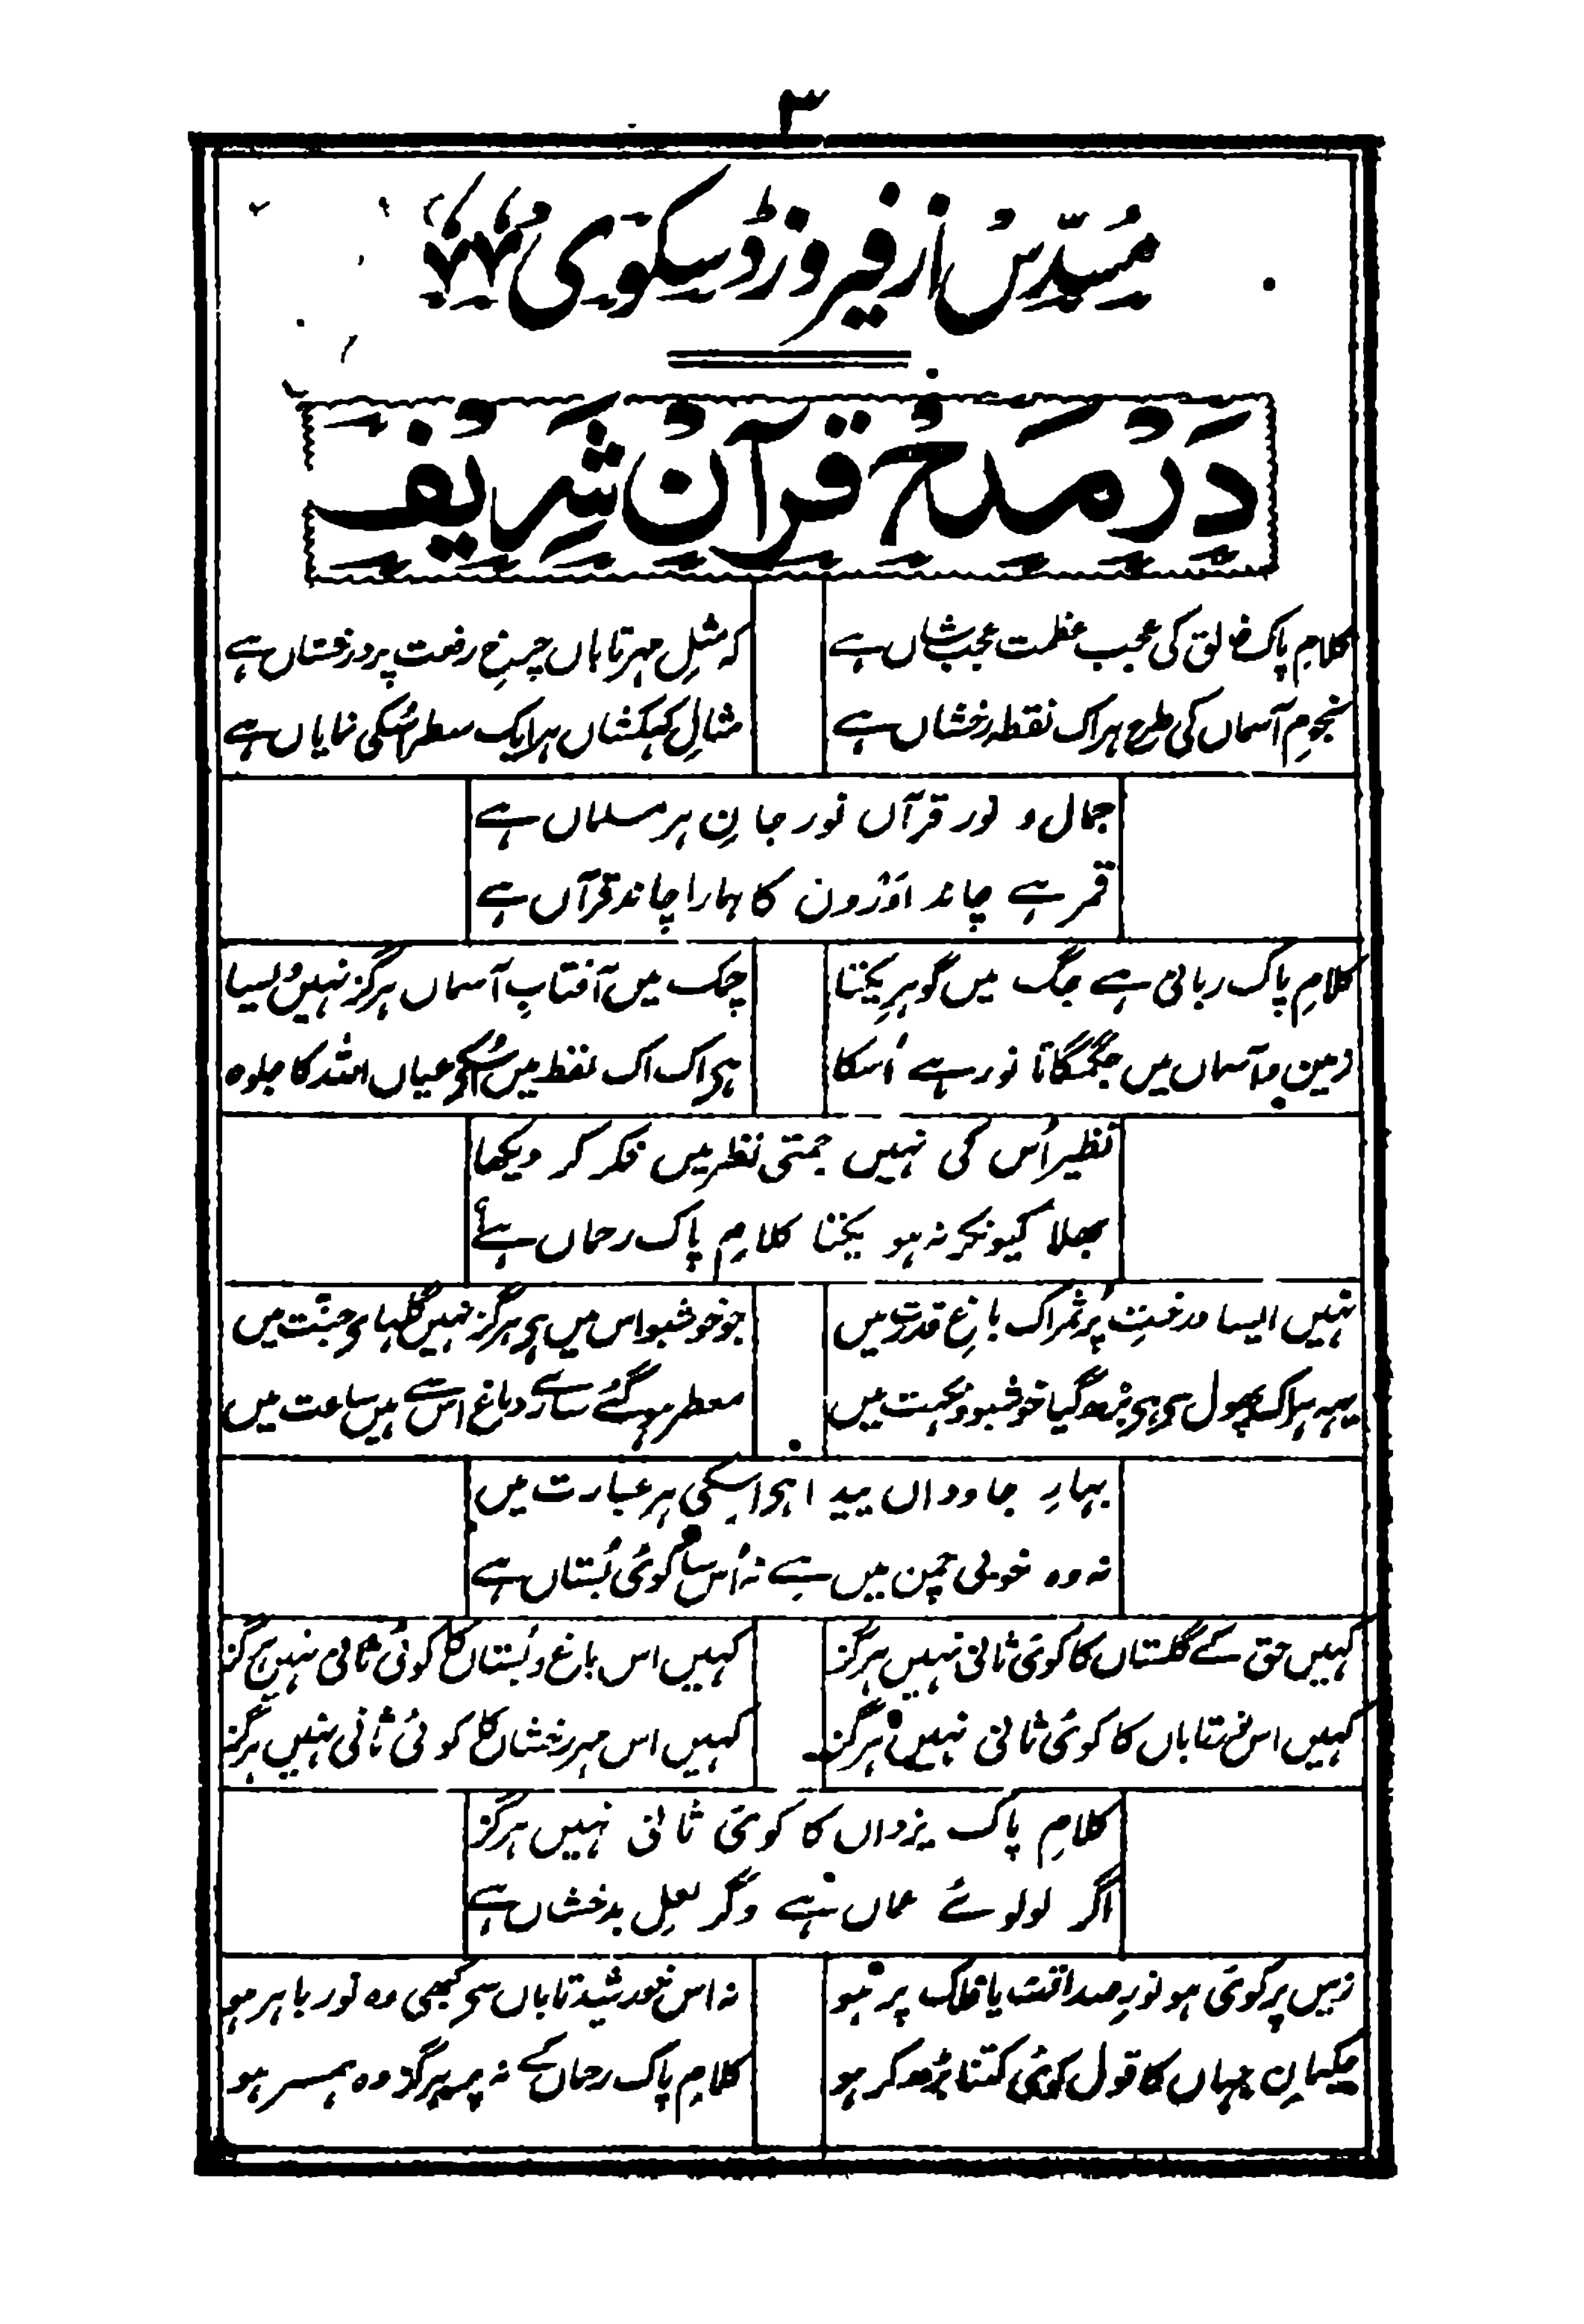 ۳
مُسدّس از فیروز ڈسکوی
دَر مَدحِ قُرآن شَریف
کلامِ پاک خالق کی عجب عظمت عجب شاں ہے کہ مثلِ مہر تاباں چرخِ رفعت پر درخشاں ہے
نجومِ آسماں کی طرح ہر اک نقطہ رخشاں ہے مثالِ کہکشاں ہر ایک سطر اُسکی نمایاں ہے
جمال و نور قرآں نور جانِ ہر مسلماں ہے
قمر ہے چاند اَوروں کا ہمارا چاند قرآں ہے
کلامِ پاک ربانی ہے جگ میں گوہرِ یکتا چمک میں آفتابِ آسماں ہرگز نہیں ایسا
زمین و آسماں میں جگمگاتا نور ہے اُسکا ہی اک اک نقطہ میں اُسکے عیاں اللہ کا جلوہ
نظیر اُس کی نہیں جمتی نظر میں فکر کر دیکھا
بھلا کیونکر نہ ہو یکتا کلامِ پاک رحماں ہے
نہیں ایسا درختِ پُرثمر اک باغِ قدرت میں جو خوشبو اس میں ہی ہرگز نہیں گلہای جنّت میں
یہہ ہر اک پھول سی ہی بڑھ گیا خوشبو و نکہت میں معطر ہو گئے سارے دماغ اس سے ہیں ساعت میں
بہارِ جاوداں پیدا ہی اسکی ہر عبارت میں
نہ وہ خوبی چمن میں ہے نہ اُس سا کوئی بُستاں ہے
کہیں حق کے گلستاں کا کوئی ثانی نہیں ہرگز کہیں اس باغ و بُستاں کا کوئی ثانی نہیں ہرگز
کہیں اس تاباں کا کوئی ثانی نہیں ہرگز کہیں اس مہر رخشاں کا کوئی ثانی نہیں ہرگز
کلامِ پاک یزداں کا کوئی ثانی نہیں ہرگز
اگر لولوئے عماں ہے وگر لعلِ بدخشاں ہے
زمیں پر کوئی ہو نورِ صداقت یا فلک پر ہو نہ اس خورشید تاباں سی کبھی وہ نور باہر ہو
حکیمانِ جہاں کا قول کوئی کتنا بڑھ کر ہو کلامِ پاک رحماں کے نہ پر ہرگز وہ ہمسر ہو